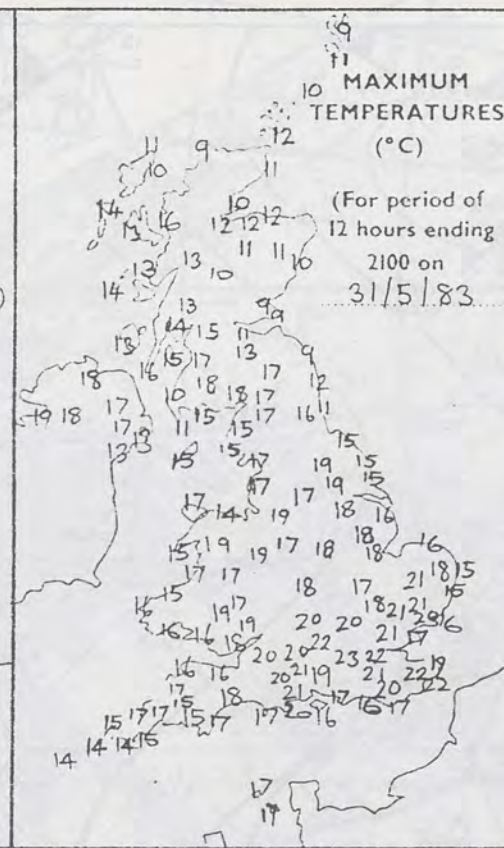 MAXIMUM
TEMPERATURES
(°C)
(For period of
12 hours ending
2100 on
31/5/83
9
11
10
12
11 9
10 11
14 16 10
11 12 12 12
13 13 11 11 10
14 10
13 9 9
14 15 11
13 15 17 13 9
16 17
18 10 18 18 17 12
19 18 17 15 17 16 11
17 11 15
13 13 15 15 15
17 19 15
17 19 15
17 14 19 17 18 16
15 19 19 17 18 18 18 16
17 17 21 18 15
15 18 17 15
16 19 17 18 21 21
16 16 19 20 20 20 16
18 22 21 17
16 16 20 20 23 22 19
17 20 21 19 21 22
15 18 21 20 22
15 17 17 15 17 17 20 16 17 16 17
14 14 14 16
17
17